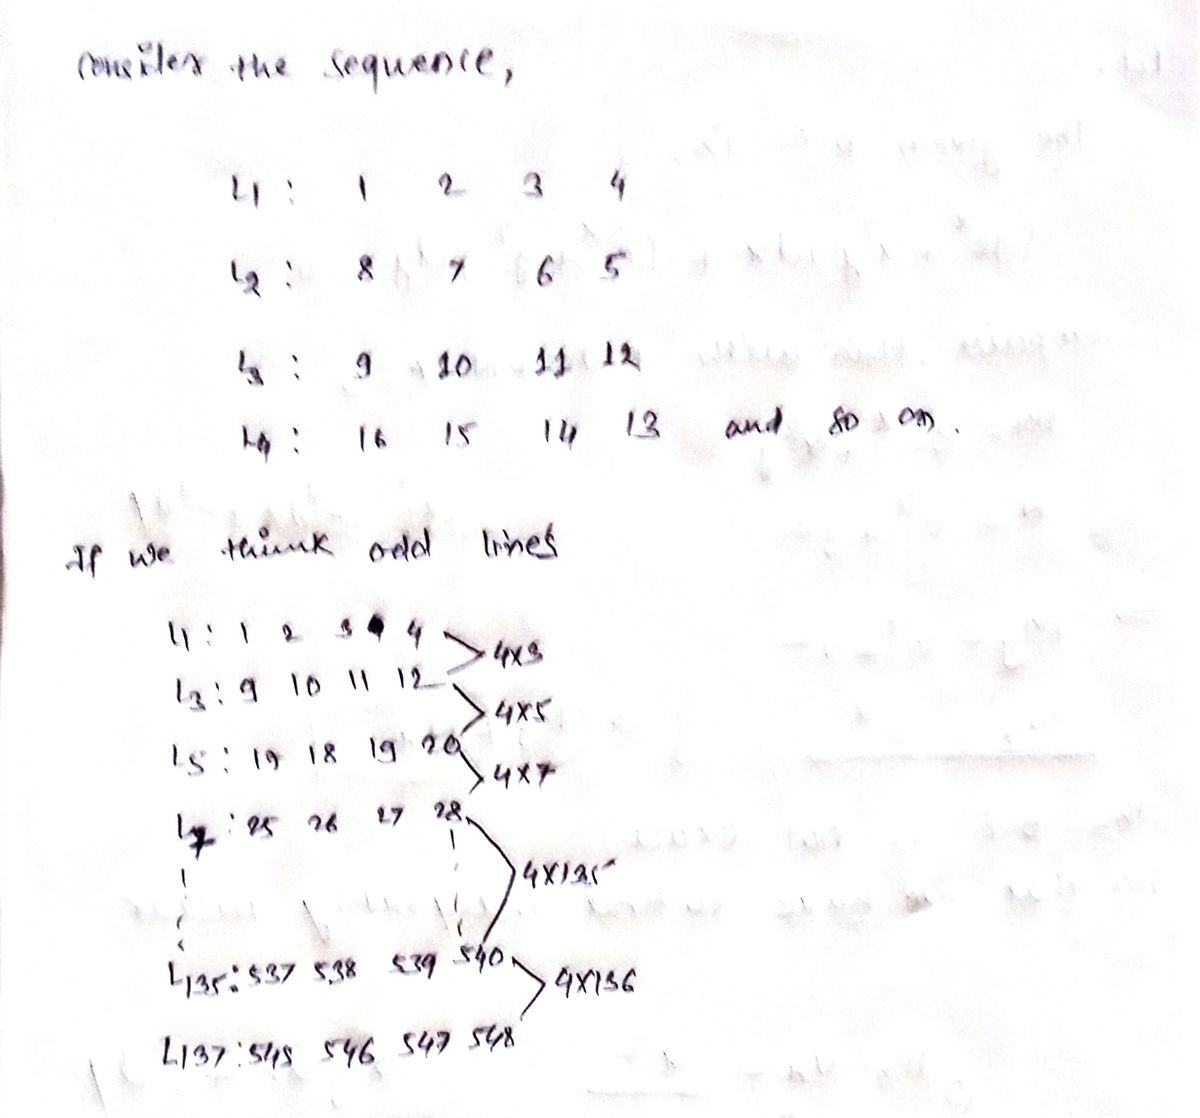 consider the sequence,
L1 : 1 2 3 4
L2 : 8 7 6 5
L3 : 9 10 11 12
L4 : 16 15 14 13 and so on.
If we think odd lines
L1 : 1 2 3 4
4x3
L3 : 9 10 11 12
4x5
L5 : 19 18 19 20
4x7
L7 : 25 26 27 28
4x135
L135 : 537 538 539 540
4x136
L137 : 545 546 547 548